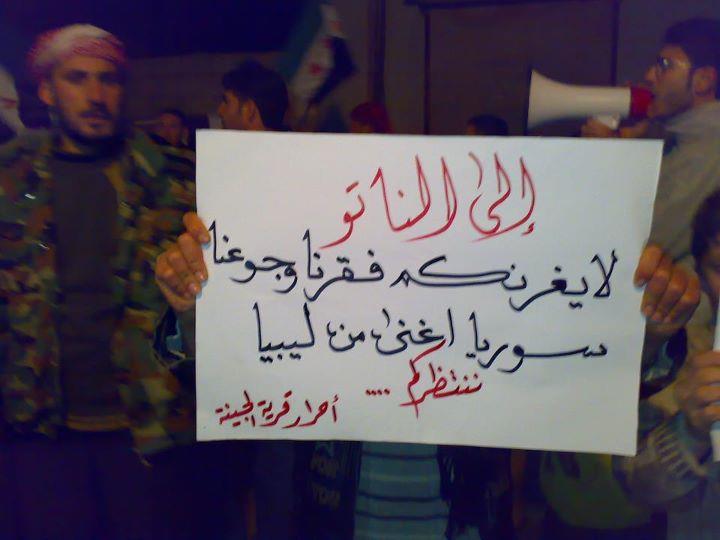 إلى الناتو
لا يغرنكم فقرنا وجوعنا
سوريا اغنى من ليبيا
ننتظركم ....
أحرار قرية الجينة